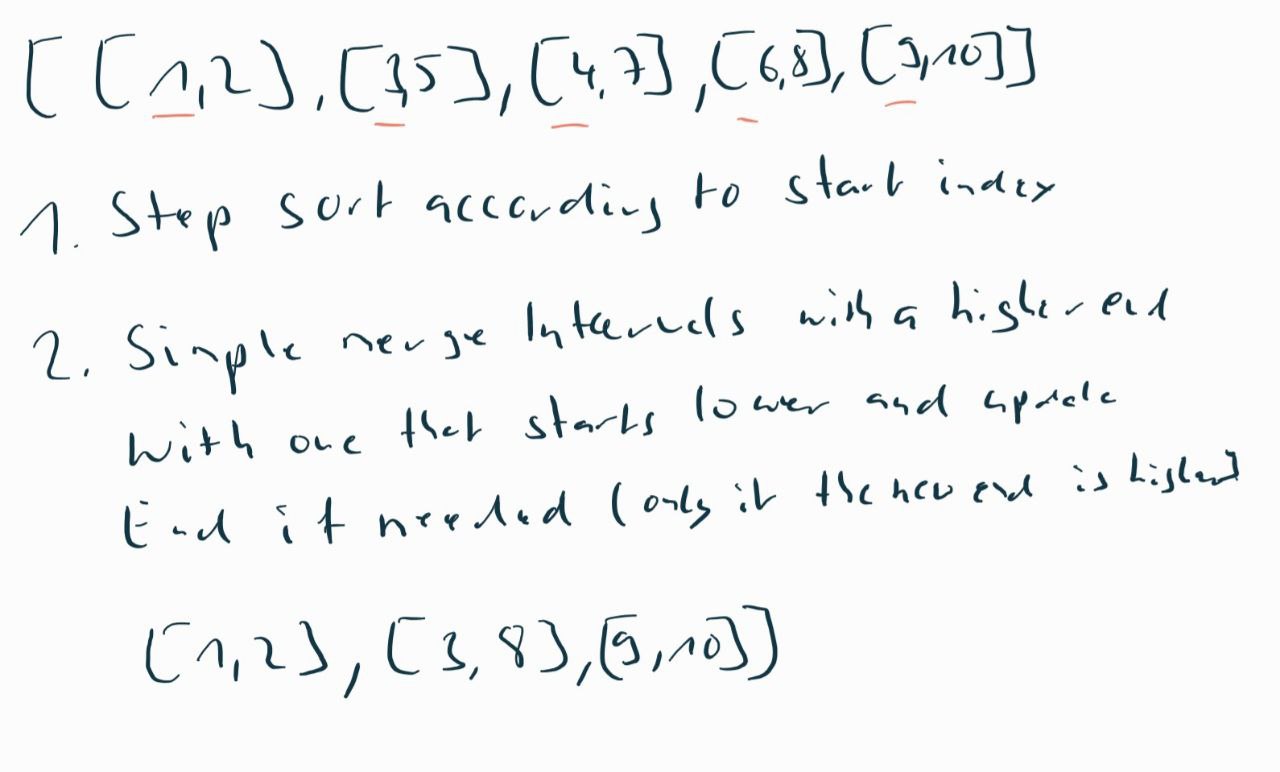 [ [1,2], [3,5], [4,7], [6,8], [9,10]]
1. Step sort according to start index
2. Simple merge Intervals with a higher end
with one that starts lower and update
End if needed (only if the new end is higher)
[1,2], [3,8], [9,10]]